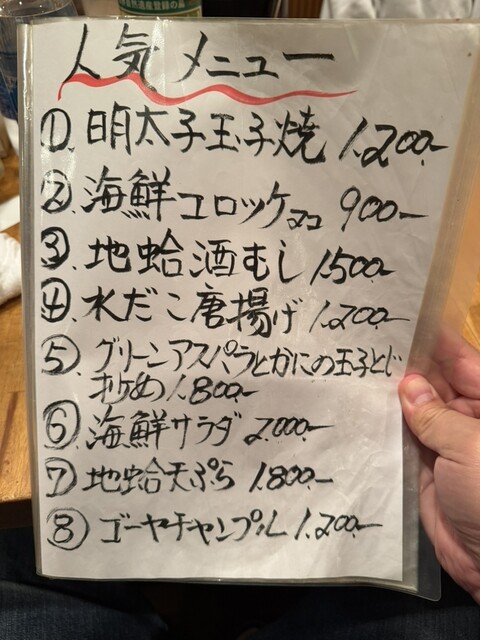 自然遺産登録の島
人気メニュー
①明太子玉子焼 1,200.-
②海鮮コロッケ 2コ 900-
③地蛤酒むし 1,500.-
④水だこ唐揚げ 1,200.-
⑤グリーンアスパラとかにの玉子とじ
炒め 1,800.-
⑥海鮮サラダ 2,000.-
⑦地蛤天ぷら 1,800.-
⑧ゴーヤチャンプル 1,200.-